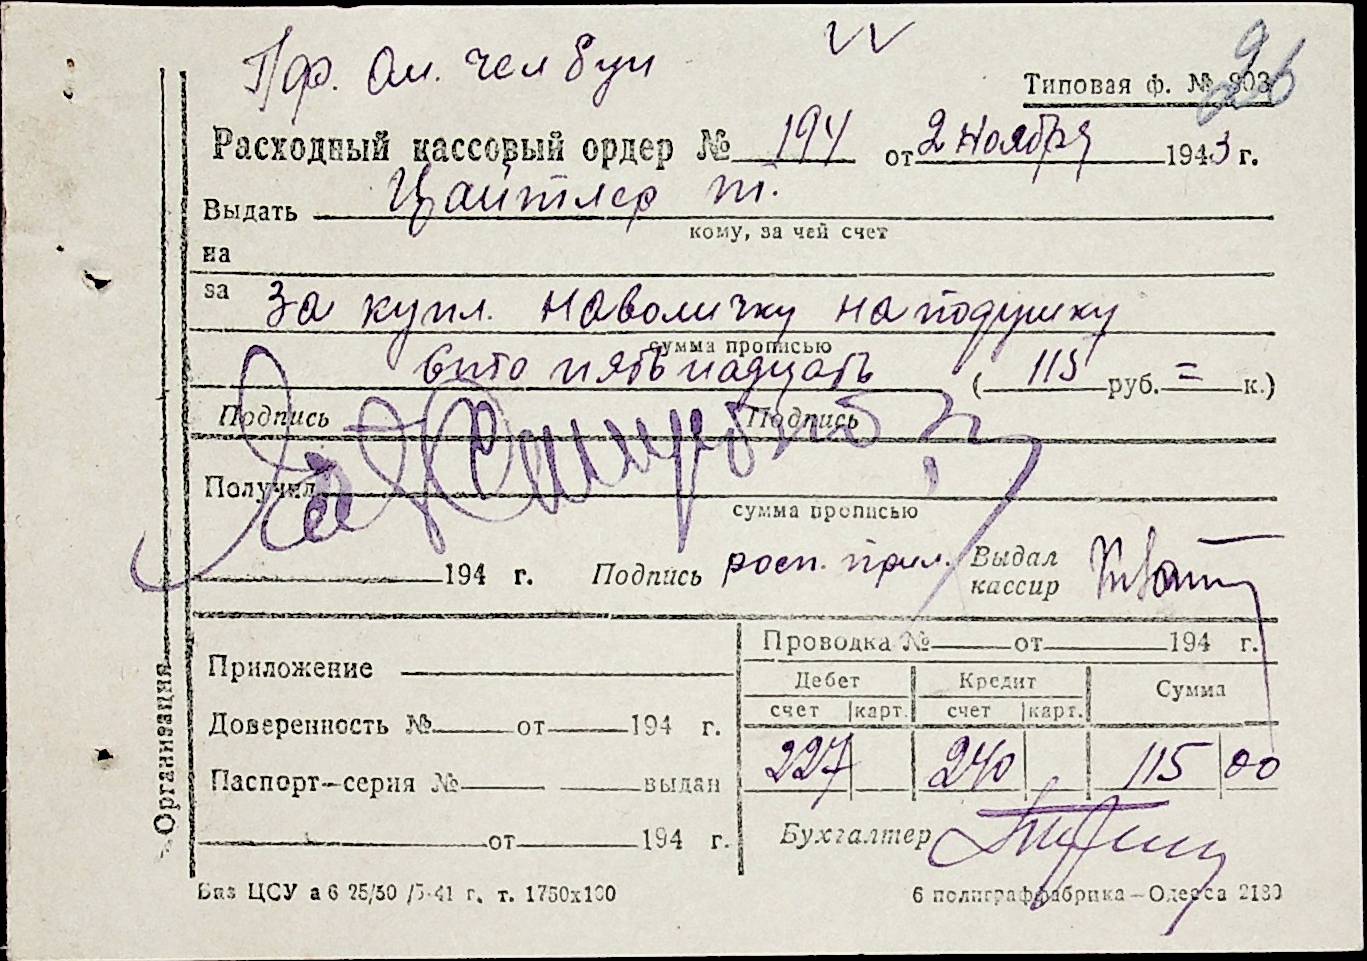 Типовая ф. № 903
26
Расходный кассовый ордер № 194 от 2 ноября 1943 г.
Выдать Цайтлер т.
кому, за чей счет
на
за За купл. наволичку на подушку
сумма прописью
сто пятьнадцать (115 руб. = к.)
Подпись Подпись
Получил
сумма прописью
194 г. Подпись росп. прил. Выдал кассир
Проводка № от 194 г.
Приложение
Дебет Кредит Сумма
счет карт. счет карт.
Доверенность № от 194 г.
227 240 115 00
Паспорт—серия № выдан
Бухгалтер
от 194 г.
Организация
Виз ЦСУ а 6 25/50 /5-41 г. т. 1750х100
6 полиграффабрика — Одесса 2180